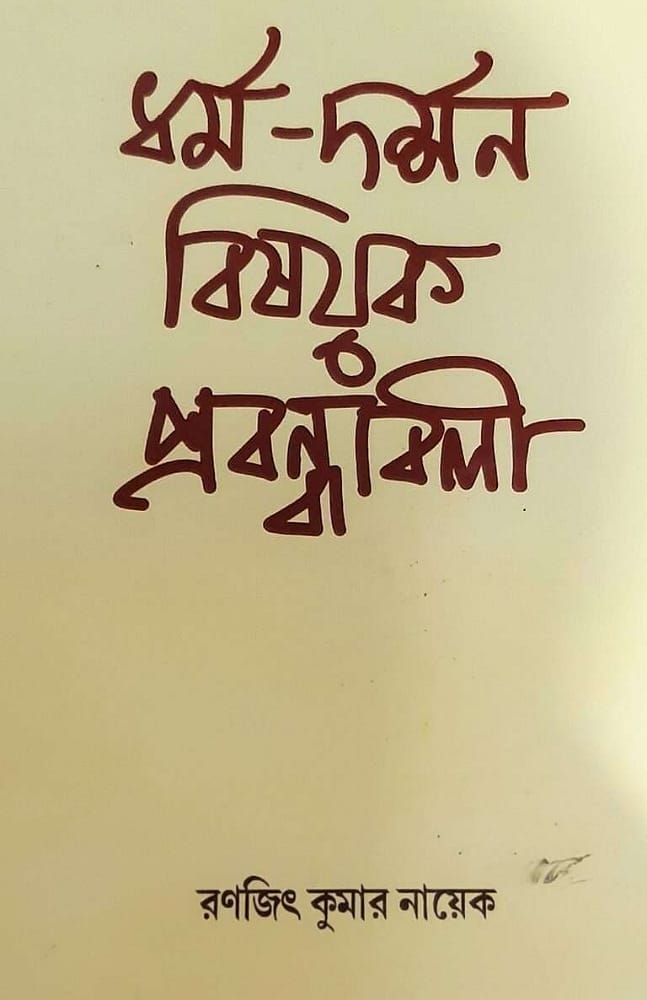 ধর্ম-দর্শন
বিষয়ক
প্রবন্ধাবলী
রণজিৎ কুমার নায়েক